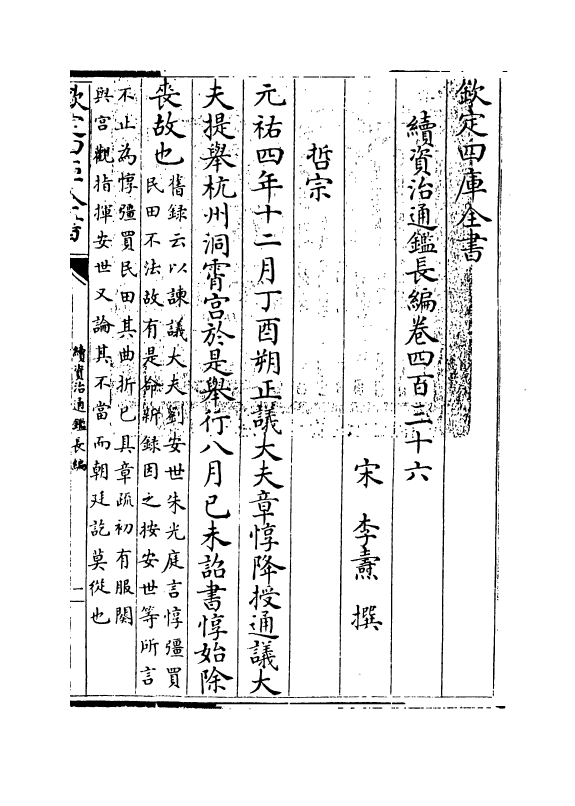 欽定四庫全書
續資治通鑑長編卷四百三十六
宋 李燾 撰
哲宗
元祐四年十二月丁酉朔正議大夫章惇降授通議大
夫提舉杭州洞霄宮於是舉行八月已未詔書惇始除
喪故也舊録云以諫議大夫劉安世朱光庭言惇彊買
民田不法故有是命新録因之按安世等所言
不止為惇彊買民田其曲折已具章疏初有服闋
與宫觀指揮安世又論其不當而朝廷訖莫從也
欽定四庫全書
續資治通鑑長編
一